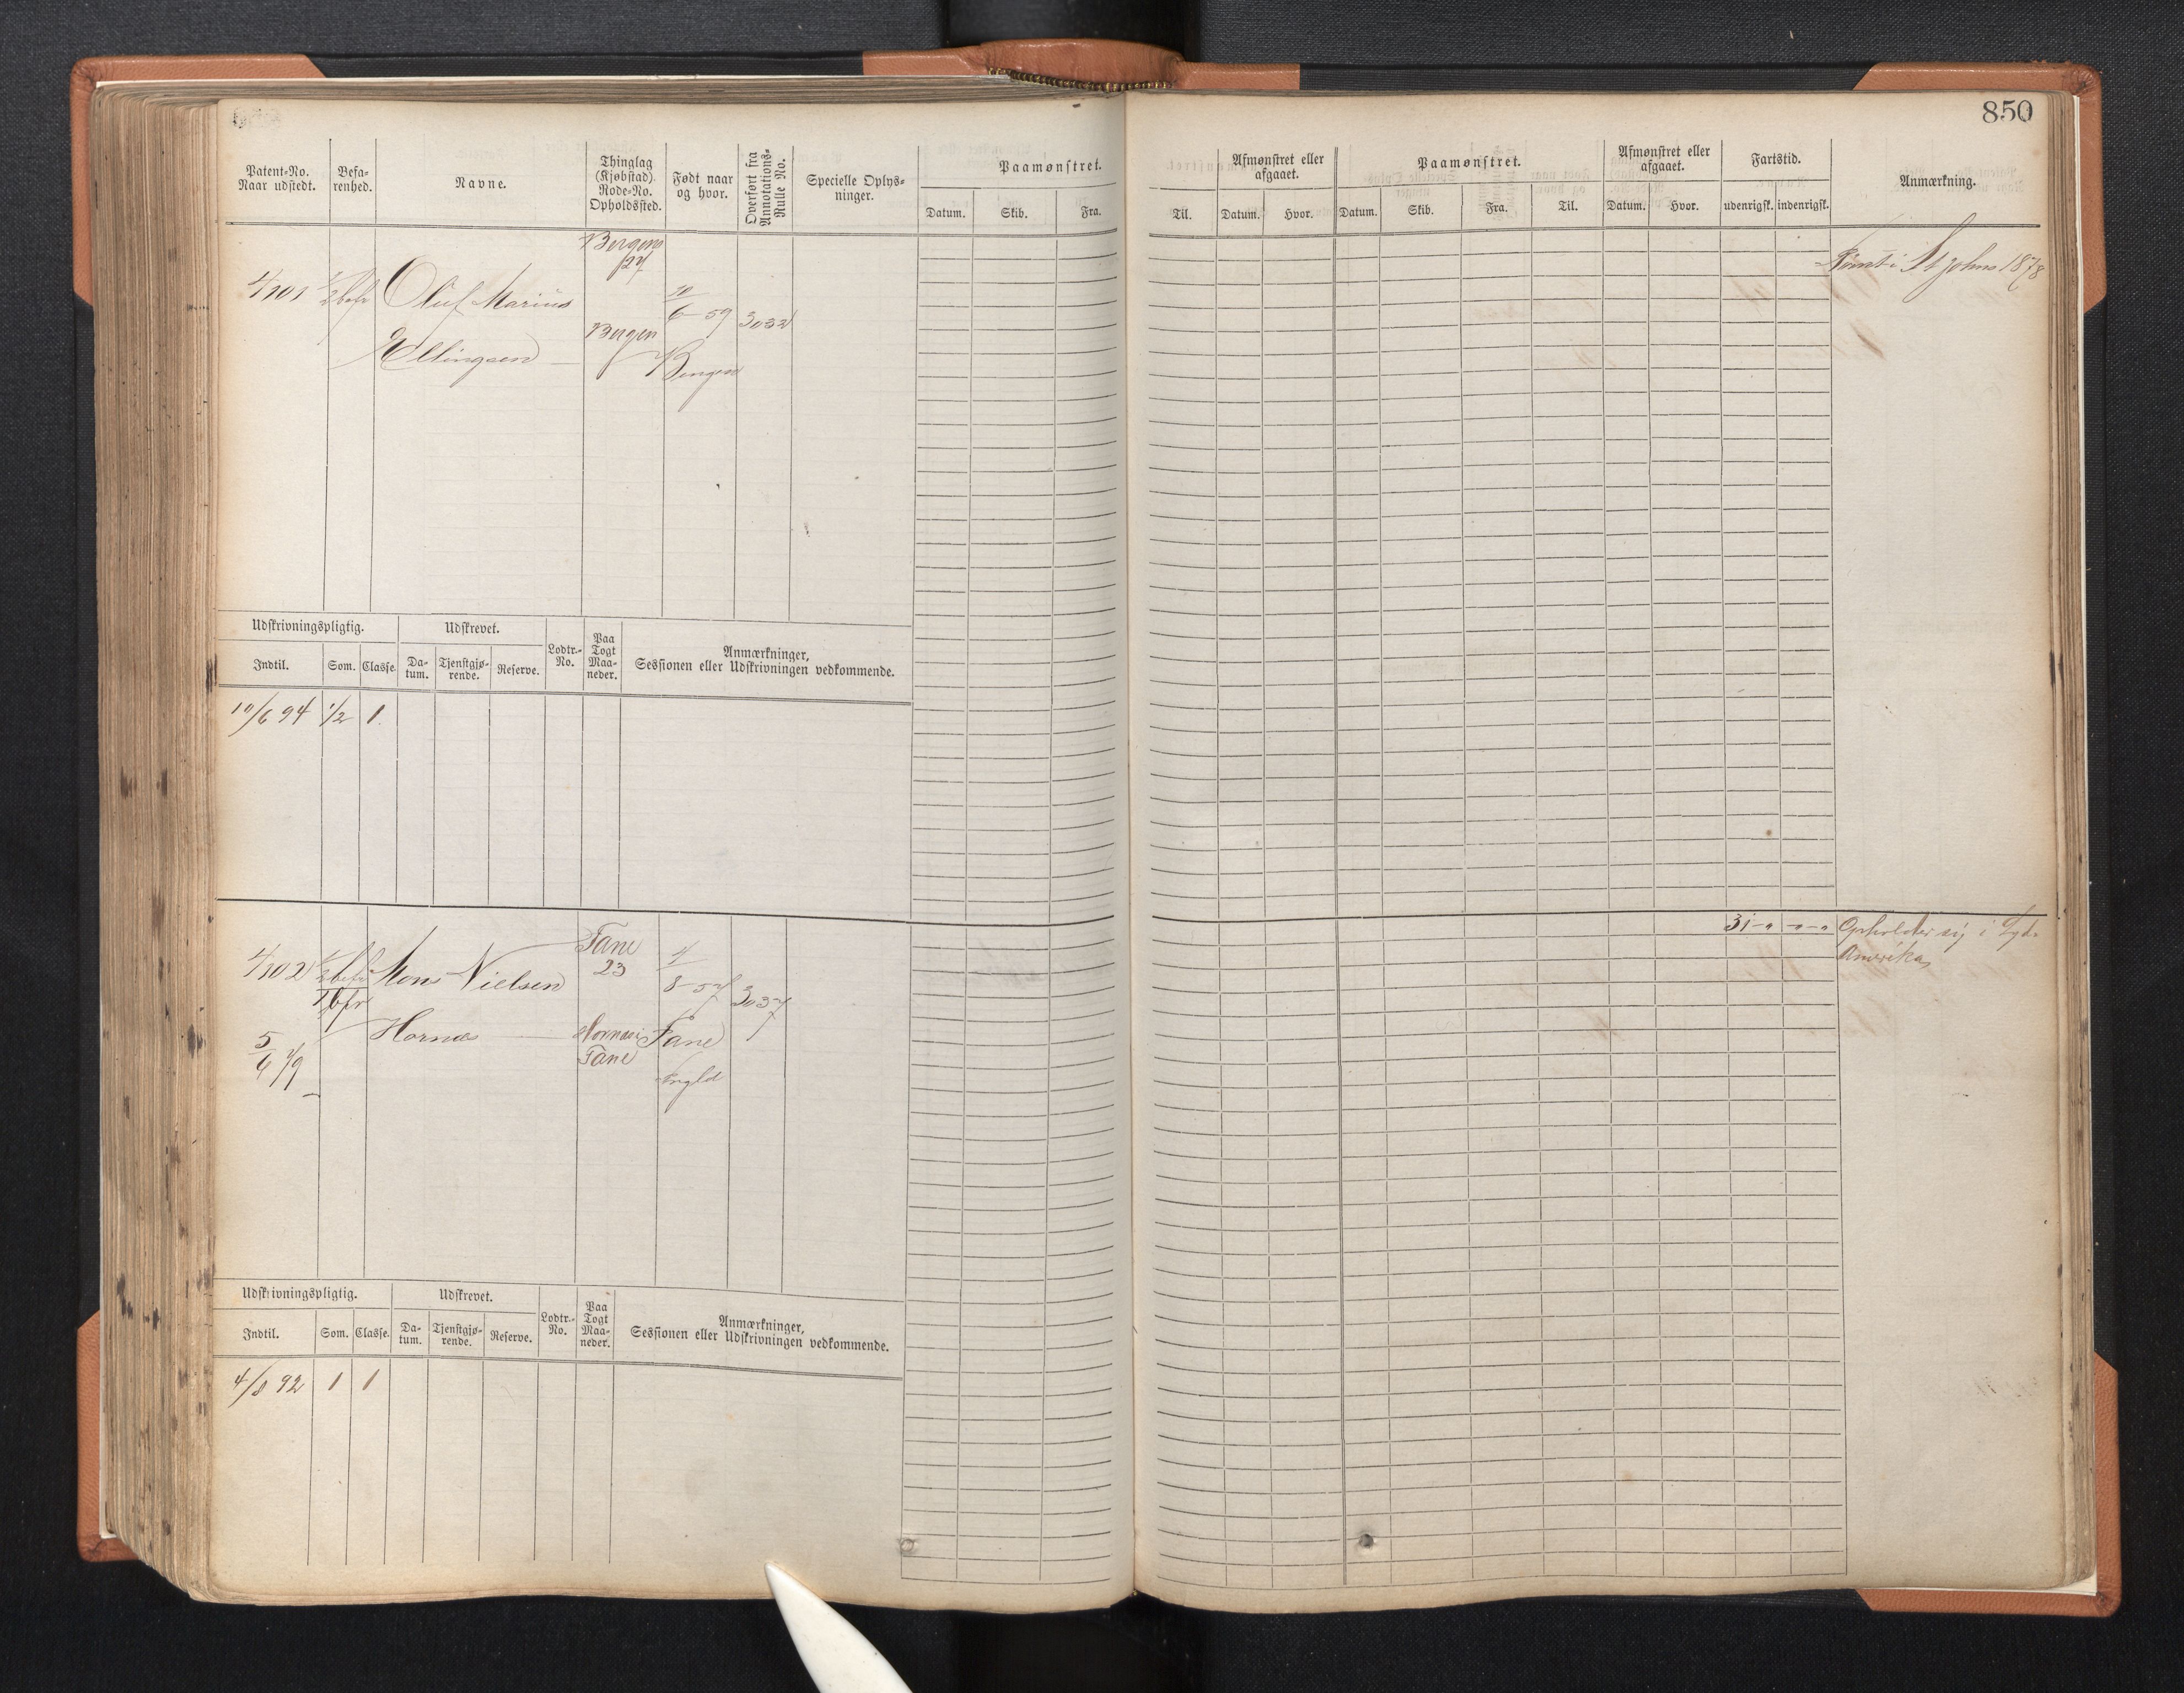 850
Patent-No.
Naar udstedt.
Befa-
renhed.
Navne.
Thinglag
(Kjøbstad).
Rode-No.
Opholdssted.
Født naar
og hvor.
Overført fra
Annotations-
Rulle No.
Specielle Oplys-
ninger.
Paamønstret.
Datum. Skib. Fra.
Til.
Afmønstret eller
afgaaet.
Datum. Hvor.
Paamønstret.
Datum. Skib. Fra. Til.
Afmønstret eller
afgaaet.
Datum. Hvor.
Fartstid.
udenrigsk. indenrigsk.
Anmærkning.
Bergen
27
4101 1/2 befr Oluf Marius
10/6 59 3032
Bergen
Ellingsen
Bergen
Rømt i St Johns 1878
Udskrivningspligtig.
Indtil. Som. Classe.
Udskrevet.
Da-
tum.
Tjenstgjø-
rende.
Reserve.
Lodtr.-
No.
Paa
Togt
Maa-
neder.
Anmærkninger,
Sessionen eller Udskrivningen vedkommende.
10/6 94 1/2 1.
Fane
23
4102 1/2 befr Mons Nielsen
1 bfr
4/8 57 3037
Hornæs
Hornæs i
Fane
Fane
Engld
5/6 79
31
Opholder sig i Syd-
Amerika
Udskrivningspligtig.
Indtil. Som. Classe.
Udskrevet.
Da-
tum.
Tjenstgjø-
rende.
Reserve.
Lodtr.-
No.
Paa
Togt
Maa-
neder.
Anmærkninger,
Sessionen eller Udskrivningen vedkommende.
4/8 92 1 1